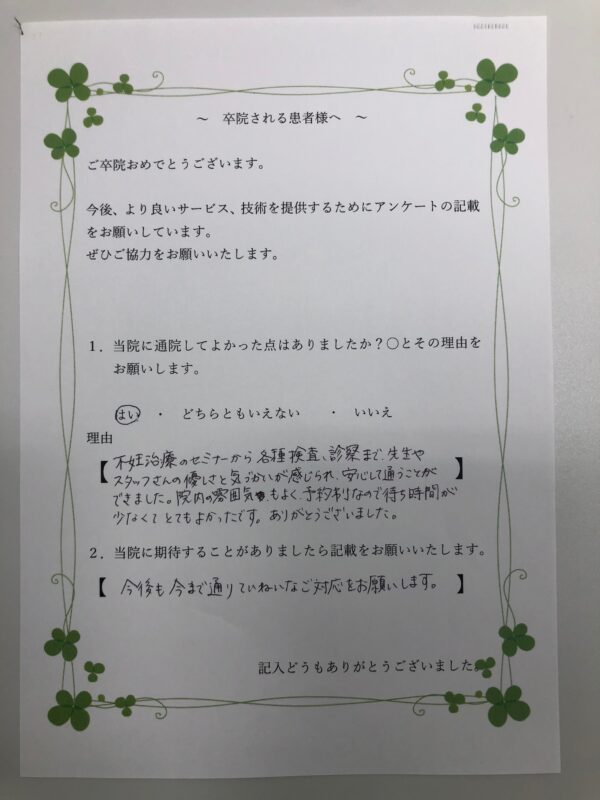 ～ 卒院される患者様へ ～
ご卒院おめでとうございます。
今後、より良いサービス、技術を提供するためにアンケートの記載
をお願いしています。
ぜひご協力をお願いいたします。
1．当院に通院してよかった点はありましたか？○とその理由を
お願いします。
はい ・ どちらともいえない ・ いいえ
理由
【不妊治療のセミナーから各種検査、診察まで、先生や
スタッフさんの優しさと気づかいが感じられ、安心して通うことが】
できました。院内の雰囲気も、もよく、予約制なので待ち時間が
少なくてとてもよかったです。ありがとうございました。
2．当院に期待することがありましたら記載をお願いいたします。
【今後も今まで通りていねいなご対応をお願いします。】
記入どうもありがとうございました。